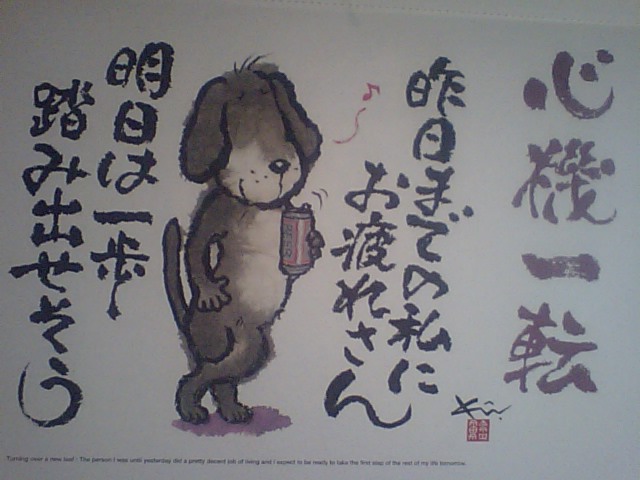 心機一転
昨日までの私に
お疲れさん
明日は一歩
踏み出せそう
Turning over a new leaf : The person I was until yesterday did a pretty decent job of living and I expect to be ready to take the first step of the rest of my life tomorrow.